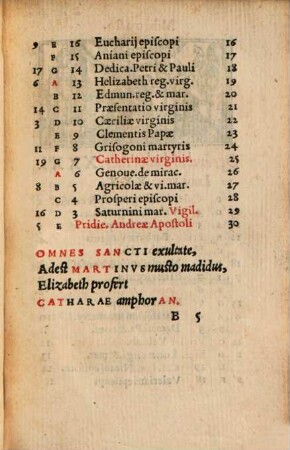 9 E 16 Eucharij episcopi 16
F 15 Aniani episcopi 17
17 G 14 Dedica. Petri & Pauli 18
6 A 13 Helizabeth reg. virg. 19
B 12 Edmun. reg. & mar. 20
14 C 11 Præsentatio virginis 21
3 D 10 Cæciliæ virginis 22
E 9 Clementis Papæ 23
11 F 8 Grisogoni martyris 24
19 G 7 Catherinæ virginis. 25
A 6 Genoue. de mirac. 26
8 B 5 Agricolæ & vi. mar. 27
C 4 Prosperi episcopi 28
16 D 3 Saturnini mar. Vigil. 29
5 E Pridie. Andreæ Apostoli 30
OMNES SANCTI exultate,
Adest MARTINVS musto madidus,
Elizabeth profert
CATHARAE amphorAN.
B 5